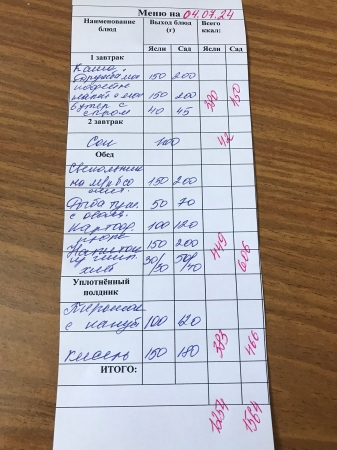 Меню на 04.07.24
Наименование блюд Выход блюд (г) Всего ккал:
Ясли Сад Ясли Сад
1 завтрак
Каша
Дружба мол 150 200
150 200
Бутер с
сыром 40 45
2 завтрак
Сок 100 42
Обед
Свекольник
на м/к б со
смет. 150 200
Рыба туш.
с овощ. 50 70
Картоф.
пюре 100 120
150 200
хлеб 30/30 50/40
449 606
Уплотнённый
полдник
с капуст 100 120
Кисель 150 180
383 466
ИТОГО:
1254 1564